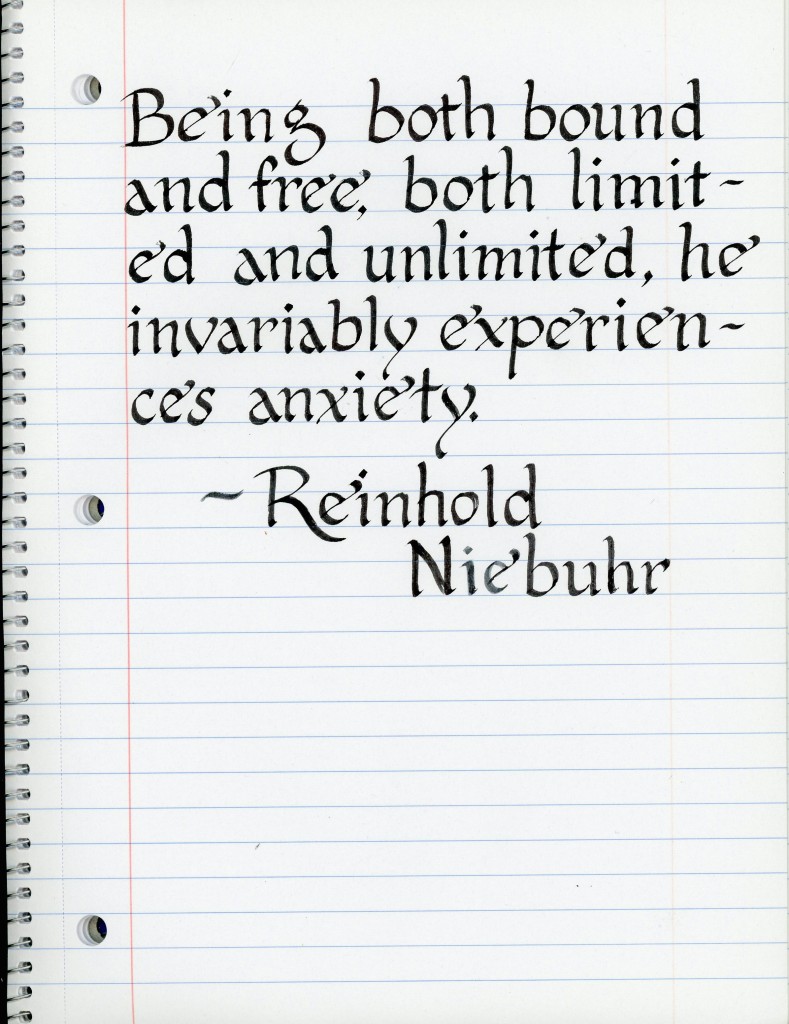 Being both bound
and free, both limit-
ed and unlimited, he
invariably experien-
ces anxiety.
~Reinhold
Niebuhr